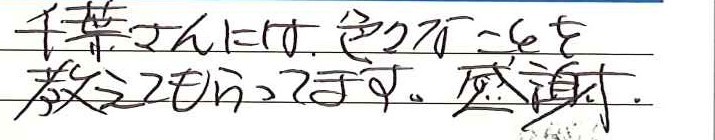 千葉さんには、色々なことを
教えてもらってます。感謝.